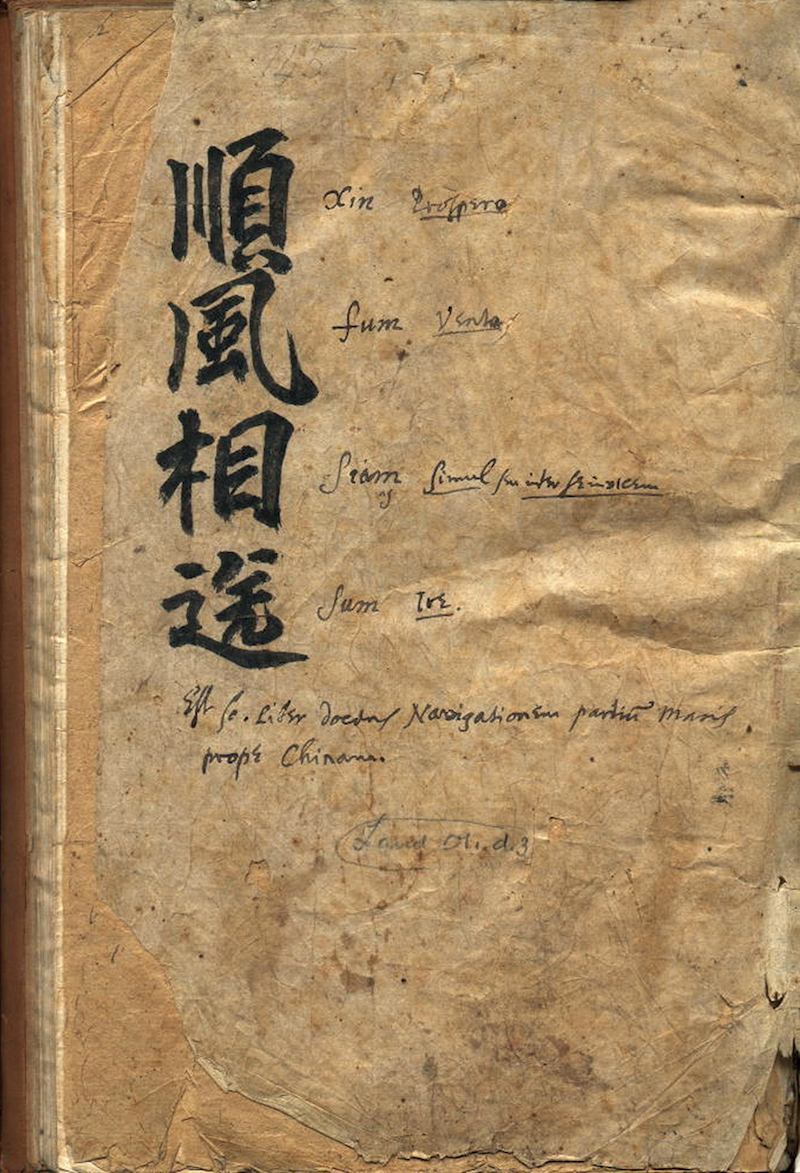 順風相送
Xin Prospero
fum Vento
Siam simul seu inter se invicem
sum Ire.
Est sc. Liber docens Navigationem partiū Maris
prope Chinam.
Laud Or. d. 3